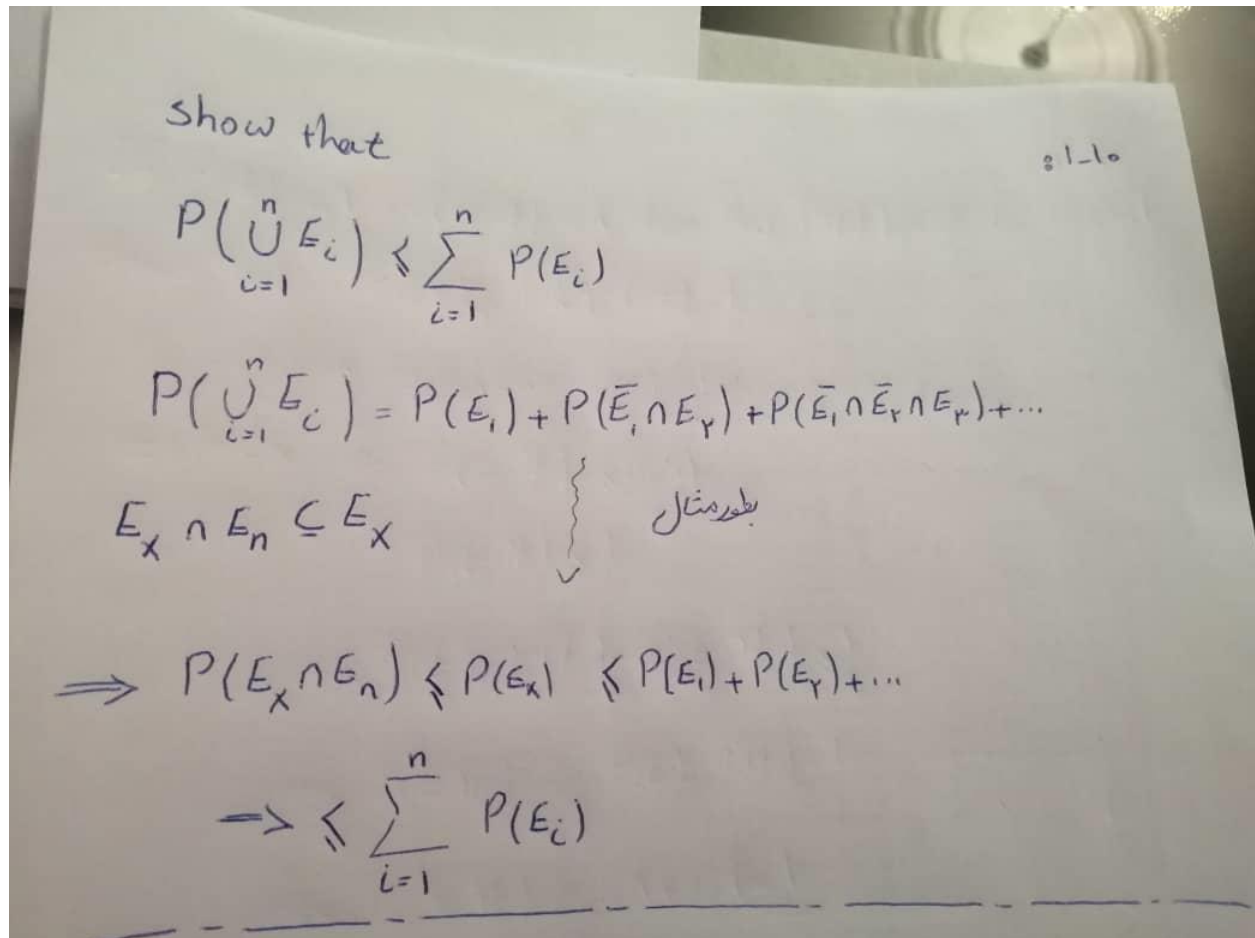 show that
۱-۱۰:
P(⋃_{i=1}^{n} E_i) ≤ ∑_{i=1}^{n} P(E_i)
P(⋃_{i=1}^{n} E_i) = P(E_۱) + P(Ē_۱ ∩ E_۲) + P(Ē_۱ ∩ Ē_۲ ∩ E_۳) + ...
E_x ∩ E_n ⊆ E_x بطور مثال
⇒ P(E_x ∩ E_n) ≤ P(E_x) ≤ P(E_۱) + P(E_۲) + ...
⇒ ≤ ∑_{i=1}^{n} P(E_i)